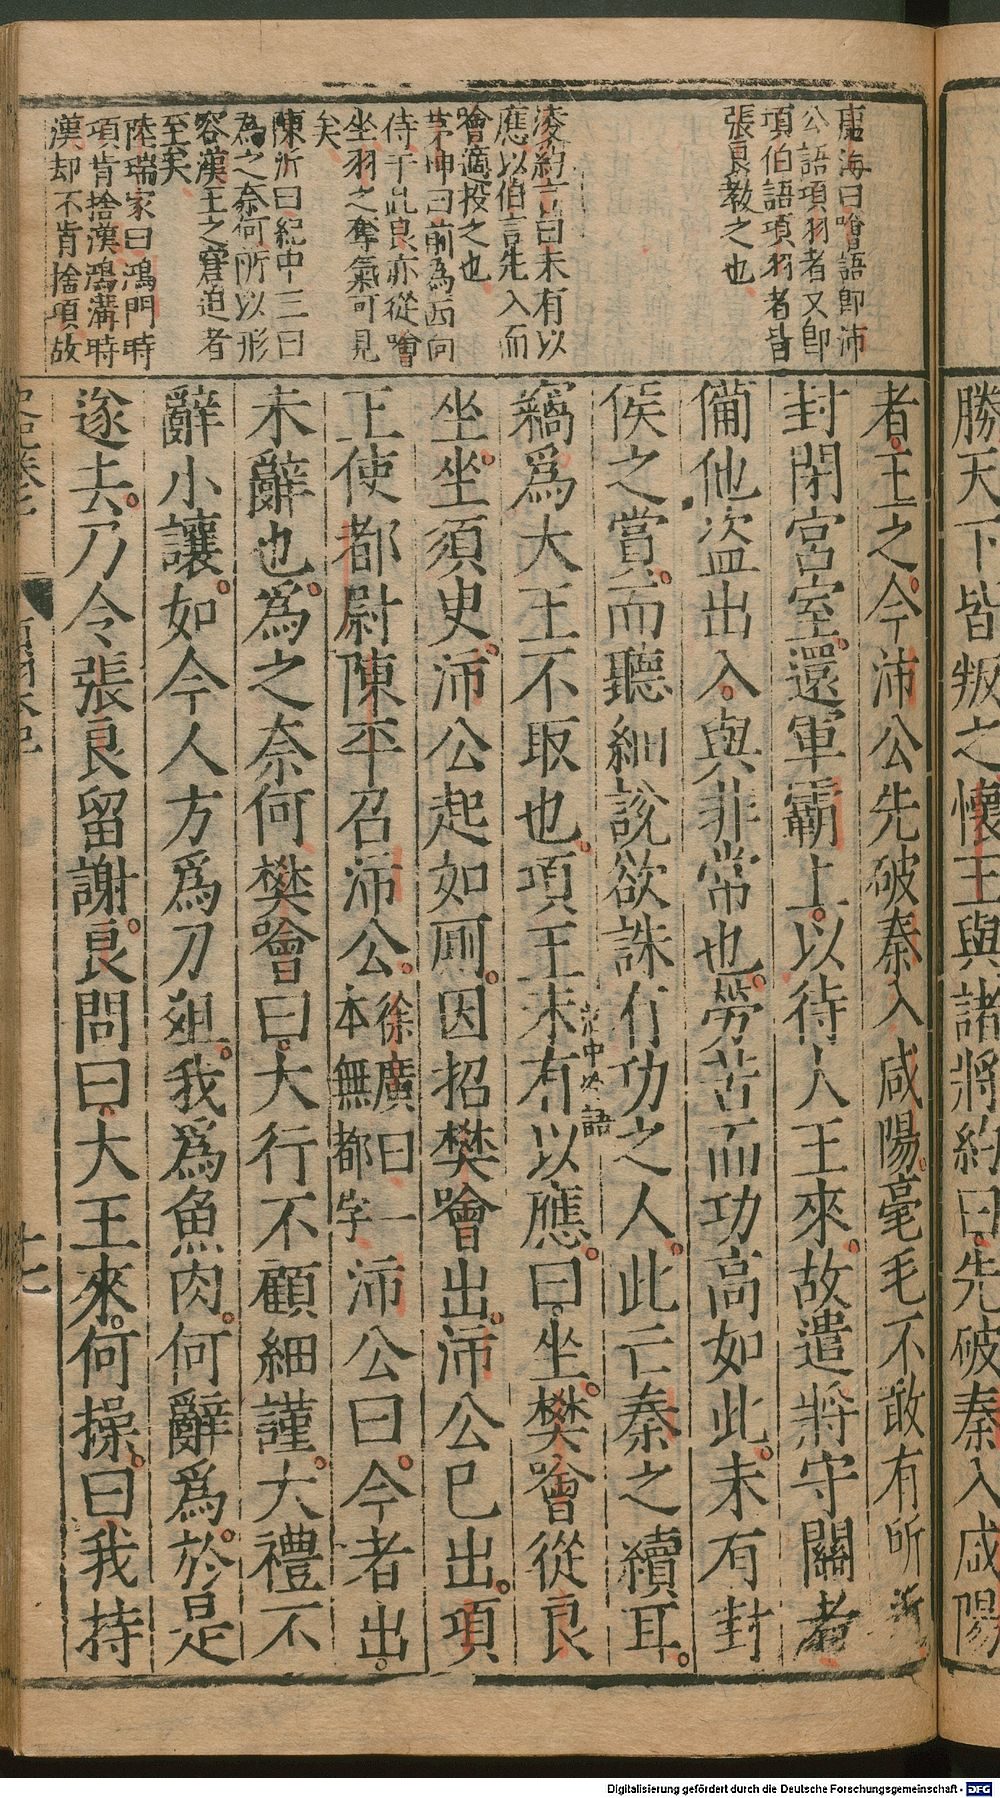 勝天下皆叛之懷王與諸將約曰先破秦入咸陽
者王之今沛公先破秦入咸陽毫毛不敢有所近
封閉宮室還軍霸上以待大王來故遣將守關者
備他盜出入與非常也勞苦而功高如此未有封
侯之賞而聽細說欲誅有功之人此亡秦之續耳
竊爲大王不取也項王未有以應曰坐樊噲從良
坐坐須臾沛公起如厠因招樊噲出沛公已出項
王使都尉陳平召沛公徐廣曰一本無都字沛公曰今者出
未辭也爲之奈何樊噲曰大行不顧細謹大禮不
辭小讓如今人方爲刀俎我爲魚肉何辭爲於是
遂去乃令張良留謝良問曰大王來何操曰我持
海曰噲語卽沛
公語項羽者又卽
項伯語項羽者皆
張良教之也
凌約言曰未有以
應以伯言先入而
噲適投之也
茅坤曰前為西向
侍于此良亦從噲
坐羽之奪氣可見
矣
陳沂曰紀中三曰
為之奈何所以形
容漢王之窘迫者
至矣
陸瑞家曰鴻門時
項肯捨漢鴻溝時
漢却不肯捨項故
史記卷七
項羽本紀
十七
Digitalisierung gefördert durch die Deutsche Forschungsgemeinschaft - DFG